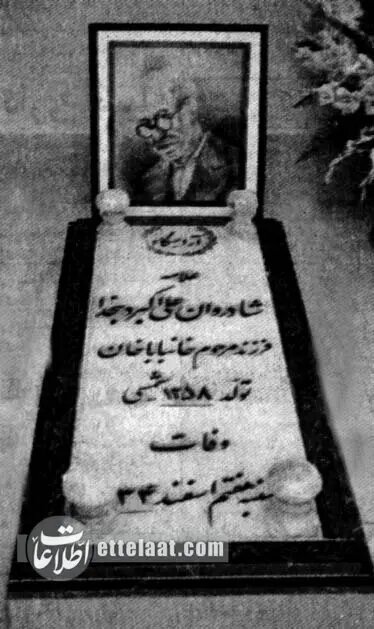 آرامگاه
علامه
شادروان علی اکبر دهخدا
فرزند مرحوم خانبابا خان
تولد ۱۲۵۸ شمسی
وفات
شنبه هفتم اسفند ۳۴
اطلاعات
ettelaat.com